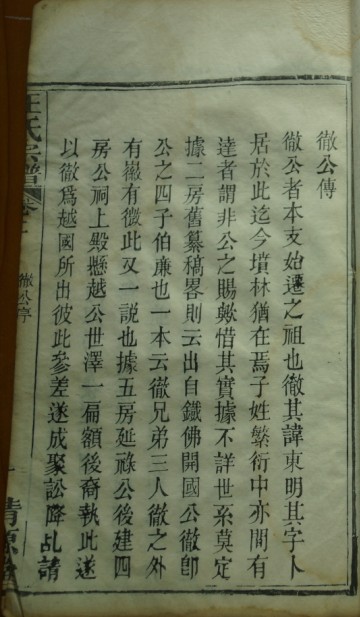 徹公傳
徹公者本支始遷之祖也徹其諱東明其字卜
居於此迄今墳林猶在焉子姓繁衍中亦間有
達者謂非公之賜歟惜其實據不詳世系莫定
據二房舊纂稿畧則云出自鐵佛開國公徹卽
公之四子伯廉也一本云徹兄弟三人徹之外
有嶽有微此又一說也據五房延祿公後建四
房公祠上毀懸越公世澤一扁額後裔執此遂
以徹爲越國所出彼此參差遂成聚訟降乩請
汪氏宗譜
徹公傳